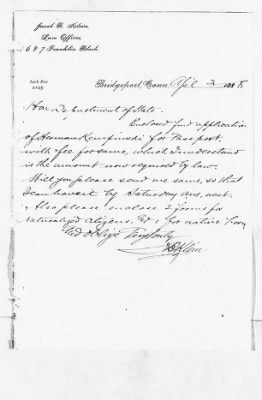 Jacob B. Klein
Law Offices,
6 & 7 Franklin Block
Lock Box
Bridgeport, Conn. Apl 3 1888
Hon. Department of State
Enclosed find application
of Herman for Passport,
with fee for same, which I understand
is the amount now required by law.
Will you please send me same, so that
I can have it by Saturday next.
Also please enclose 2 forms for
naturalized citizens, & 1 for native born
and oblige Yours truly
J B Klein